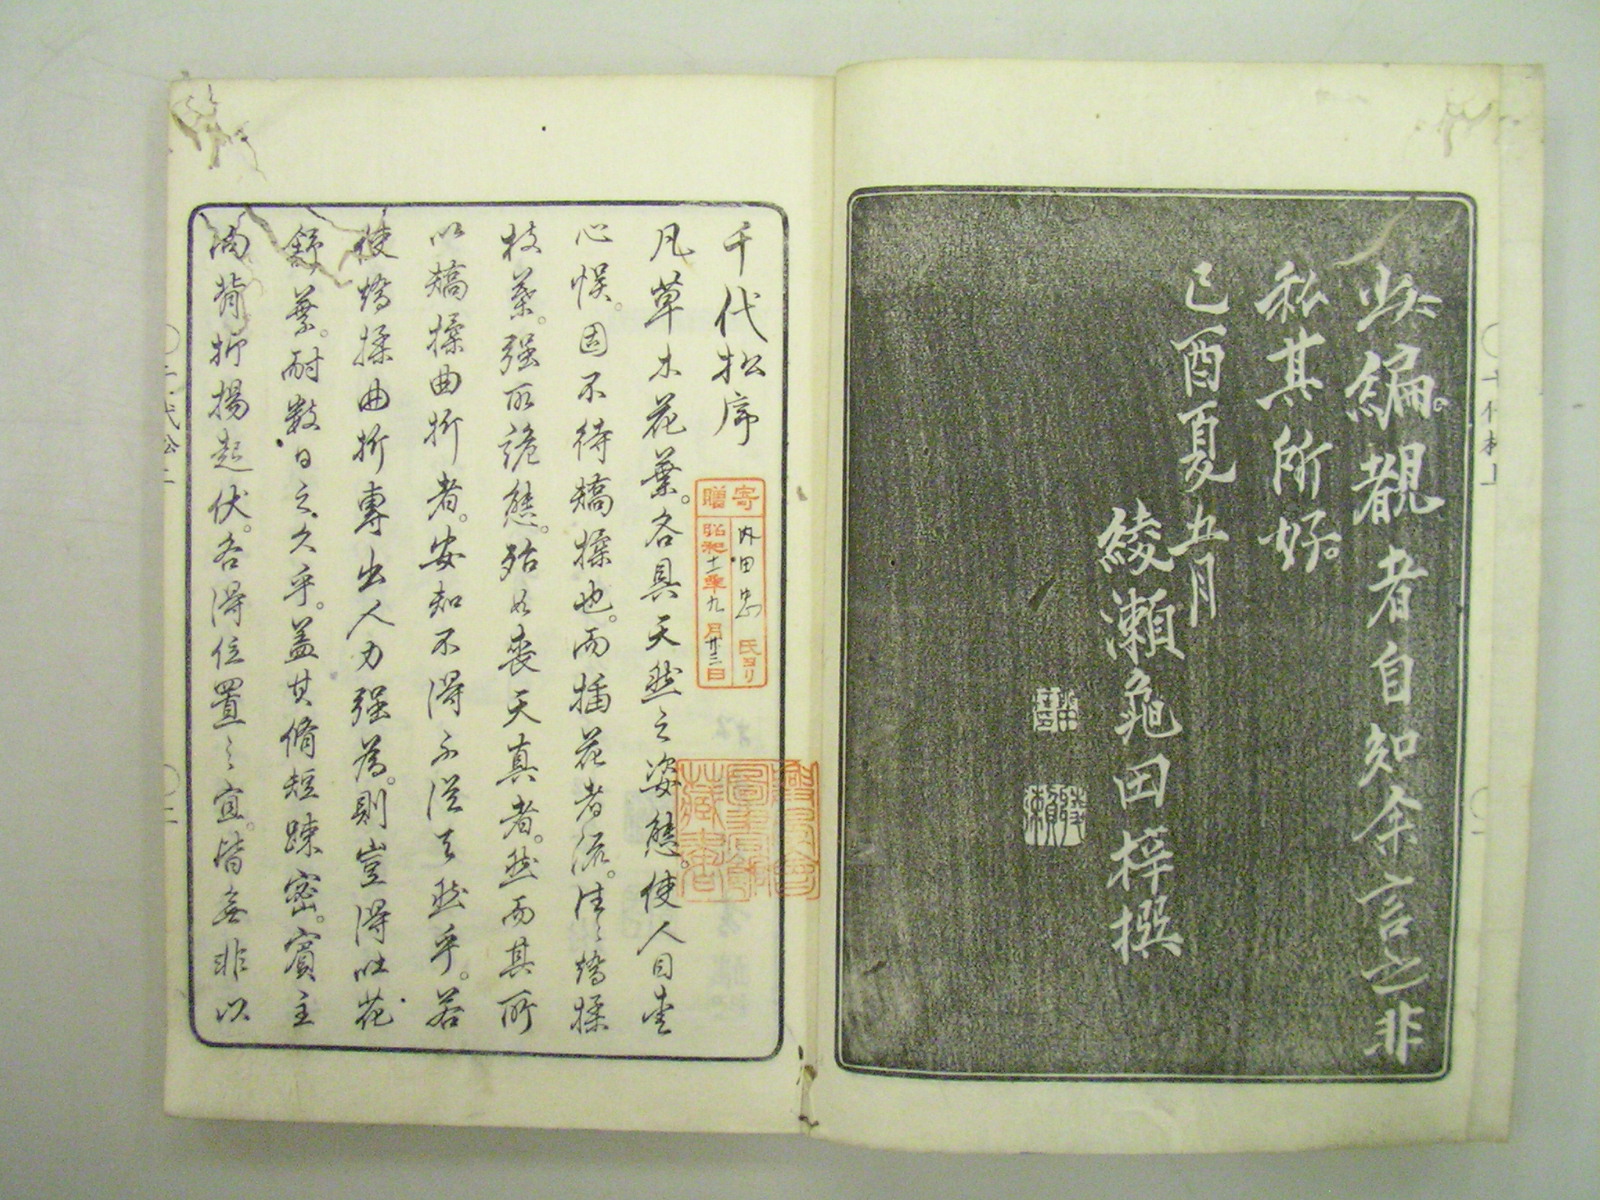 此編。覩者自知余言之非
私其所好。
己酉夏五月
綾瀬龜田梓撰
千代松序
寄贈
内田忠氏ヨリ
昭和十一年九月廿三日
凡草木花葉。各具天然之姿態。使人目
心悞。固不待矯揉也。而插花者流。往々矯揉
枝葉。强取詭態。殆如喪天真者。然而其所
以矯揉曲折者。安知不得不從天然乎。若
使矯揉曲折專出人力强爲。則豈得吐花
舒葉。耐數日之久乎。蓋其脩短疎密。賓主
向背抑揚起伏。各得位置之宜。皆無非以
圖書館
藏書